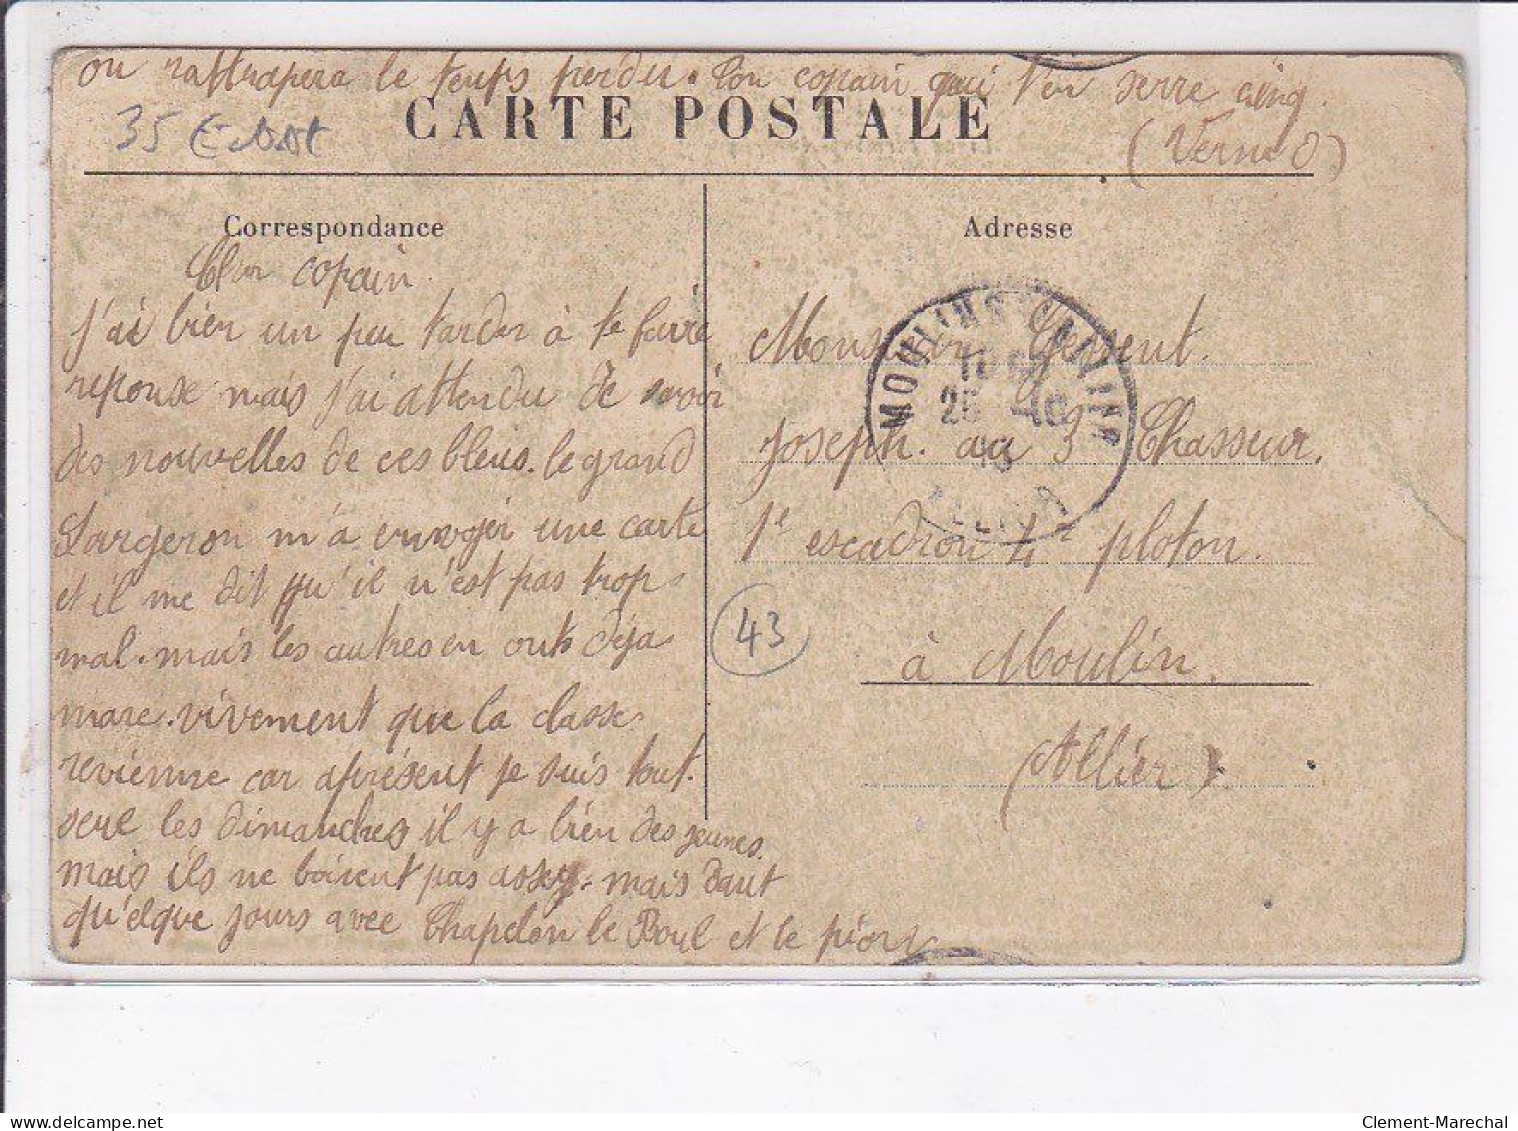 on rattrapera le temps perdu. Ton copain qui t'en serre cinq.
(Vernad)
35
CARTE POSTALE
Correspondance
Cher copain.
J'ai bien un peu tarder à te faire
reponse mais j'ai attendu de savoir
des nouvelles de ces bleus. le grand
Largeron m'a envoyer une carte
et il me dit qu'il n'est pas trop
mal. mais les autres en onts déja
mare. vivement que la classe
revienne car aprésent je suis tout
seul les dimanches il y a bien des jeunes.
mais ils ne boivent pas assez. mais daut
qu'elque jours avec Chapelon le Boul et le
Adresse
Monsieur Gerent.
Joseph. au 3e Chasseur.
1e escadron 4e ploton.
à Moulin.
(Allier)
MOULINS
ALLIER
43
Clement-Marechal